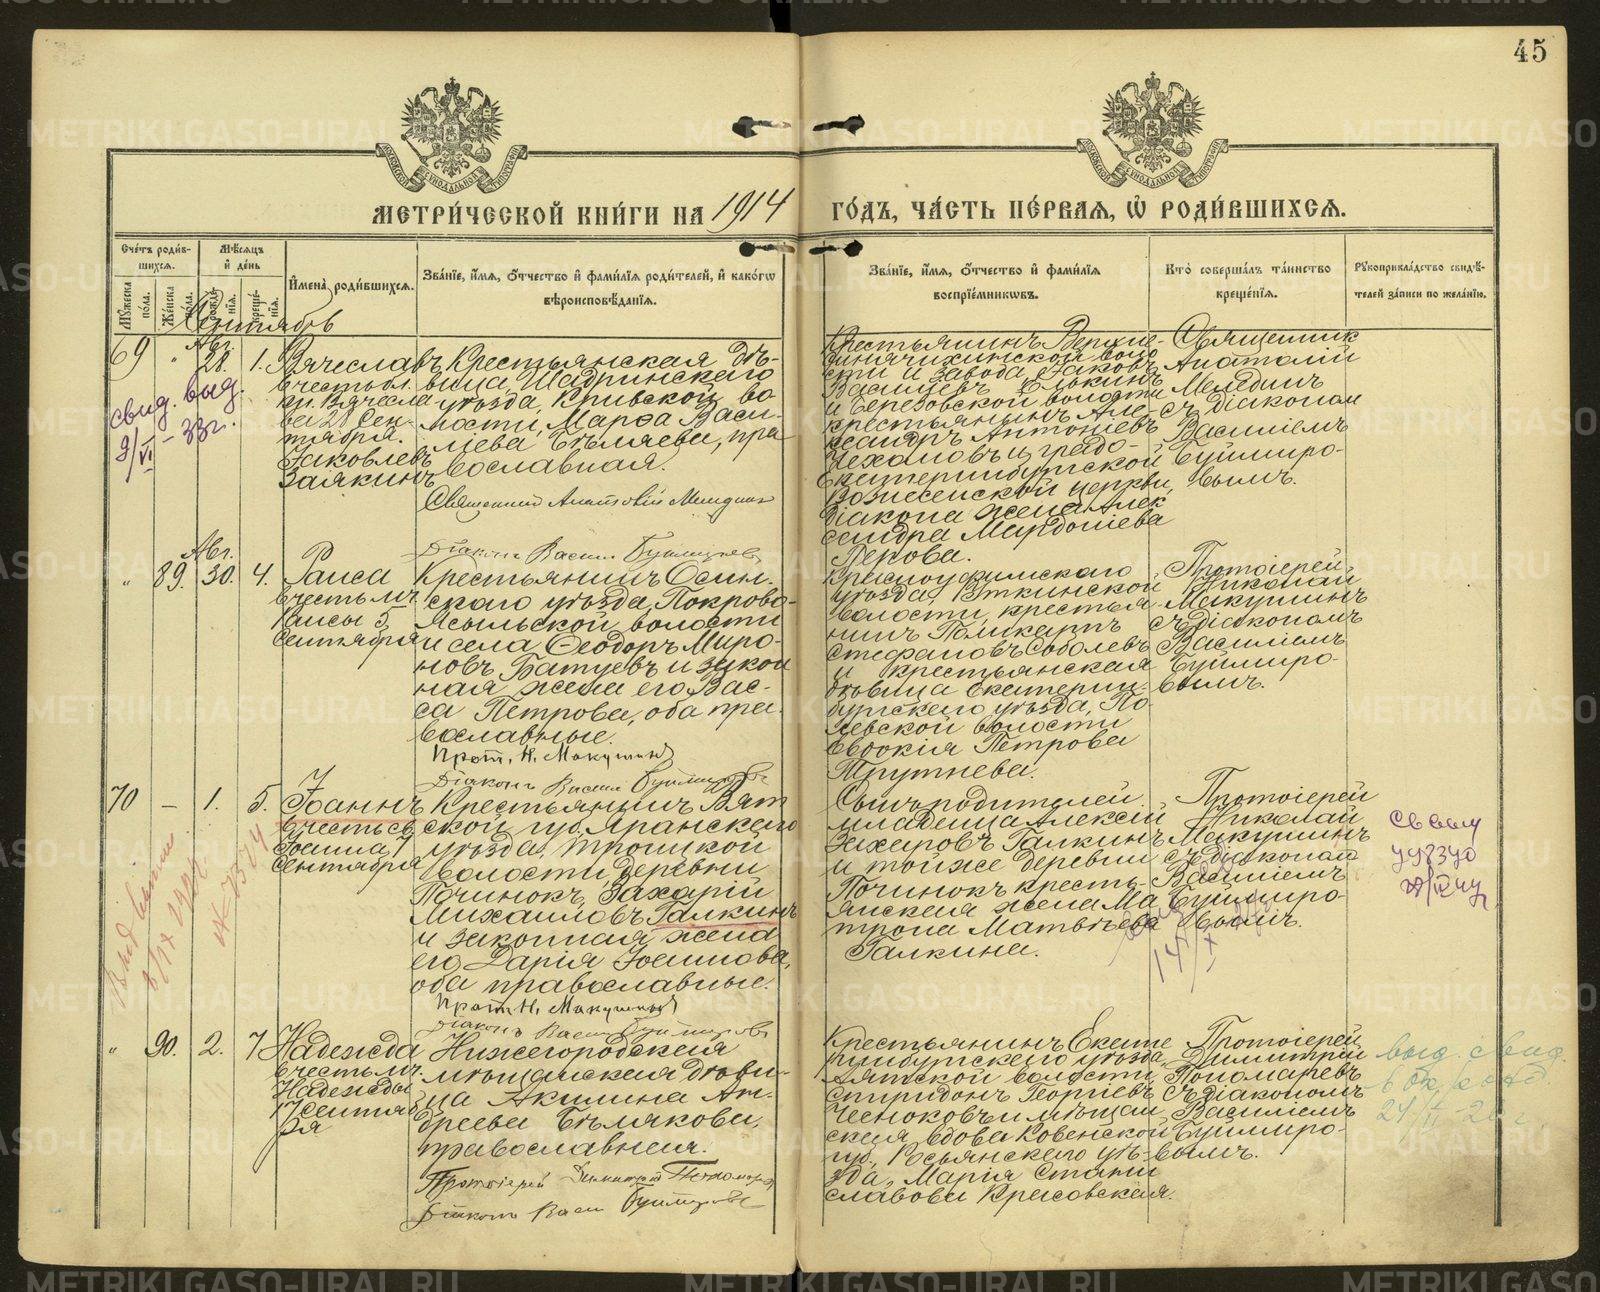 45
МЕТРИ́ЧЕСКОЙ КНИ́ГИ НА 1914 ГО́ДЪ, ЧА́СТЬ ПЕ́РВАЯ, Ѡ РОДИ́ВШИХСЯ.
Счетъ роди́вшихся.
Му́жеска по́ла.
Же́нска по́ла.
Мѣ́сяцъ и де́нь
рожде́нія.
креще́нія.
И҆мена̀ роди́вшихся.
Зва́ніе, и҆́мя, ѻ҆́тчество и҆ фами́лія роди́телей, и҆ како́гѡ
вѣроисповѣ́данія.
Зва́ніе, и҆́мя, ѻ҆́тчество и҆ фами́лія
воспріе́мникѡвъ.
Кто̀ соверша́лъ та́инство
креще́нія.
Рꙋкоприкла́дство свидѣ́-
телей за́писи по жела́нію.
Сентябрь
69
"
Авг.
28.
1.
Вячеславъ
въ честь бл.
кн. Вячесла
ва 28 Сен-
тября.
Яковлевъ
Заякинъ
Крестьянская дѣ-
вица, Шадринскаго
уѣзда, Кривской во
лости, Марѳа Васи-
ліева Бѣляева, пра
вославная.
Священникъ Анатолій Мелединъ
Діаконъ Василій Буймировъ
свид. выд.
9/VI – 33 г.
Крестьянинъ Верхне-
синячихинской воло
сти и завода Іаковъ
Васильевъ
и Березовской волости
крестьянинъ Але-
ксандръ Антоніевъ
Чехановъ и градо-
Екатеринбургской
Вознесенской церкви,
діакона жена Алек
сандра Мардоніева
Перова.
Священник
Анатолій
Мелединъ
съ діакономъ
Василіемъ
Буймиро-
вымъ.
"
89.
Авг.
30.
4.
Раиса
въ честь мч.
Раисы 5
Сентября
Крестьянинъ Осин-
скаго уѣзда, Покрово-
Ясыльской волости
и села, Ѳеодоръ Миро-
новъ Батуевъ и закон
ная жена его Вас-
са Петрова, оба пра-
вославные.
Прот. Н. Макушинъ
Діаконъ Василій Буймировъ
Красноуфимскаго
уѣзда, Уткинской
волости, крестья-
нинъ Поликарпъ
Стефановъ Соболевъ
и крестьянская
дѣвица Екатерин-
бургскаго уѣзда, По-
левской волости
Евдокія Петрова
Трутнева.
Протоіерей
Николай
Макушинъ
съ діакономъ
Василіемъ
Буймиро-
вымъ.
70
–
1.
5.
Іоаннъ
въ честь св.
Іоанна 7
Сентября
Крестьянинъ Вят
ской губ. Яранскаго
уѣзда, Троицкой
волости, деревни
Починокъ, Захарій
Михаиловъ Галкинъ
и законная жена
его Дарія Іоаннова,
оба православные.
Прот. Н. Макушинъ
Діаконъ Василій Буймировъ
Сынъ родителей
младенца Алексій
Захаровъ Галкинъ
и той же деревни
Починокъ кресть-
янская жена Ма
трона Матвѣева
Галкина.
Протоіерей
Николай
Макушинъ
съ діакономъ
Василіемъ
Буймиро-
вымъ.
"
90.
2.
7
Надежда
въ честь мч.
Надежды
17 Сентяб
ря
Нижегородская
мѣщанская дѣви-
ца Акилина Ан-
дреева Бѣлякова,
православная.
Протоіерей Димитрій Пономаревъ
Діаконъ Васи Буймировъ
Крестьянинъ Екате
ринбургскаго уѣзда,
Аятской волости,
Спиридонъ Георгіевъ
Чесноковъ и мѣщан
ская вдова Ковенской
губ., Росьянскаго уѣ-
зда, Марія Стани
славова Красовская.
Протоіерей
Димитрій
Пономаревъ
съ діакономъ
Василіемъ
Буймиро-
вымъ.
выд. свид.
METRIKI.GASO-URAL.RU